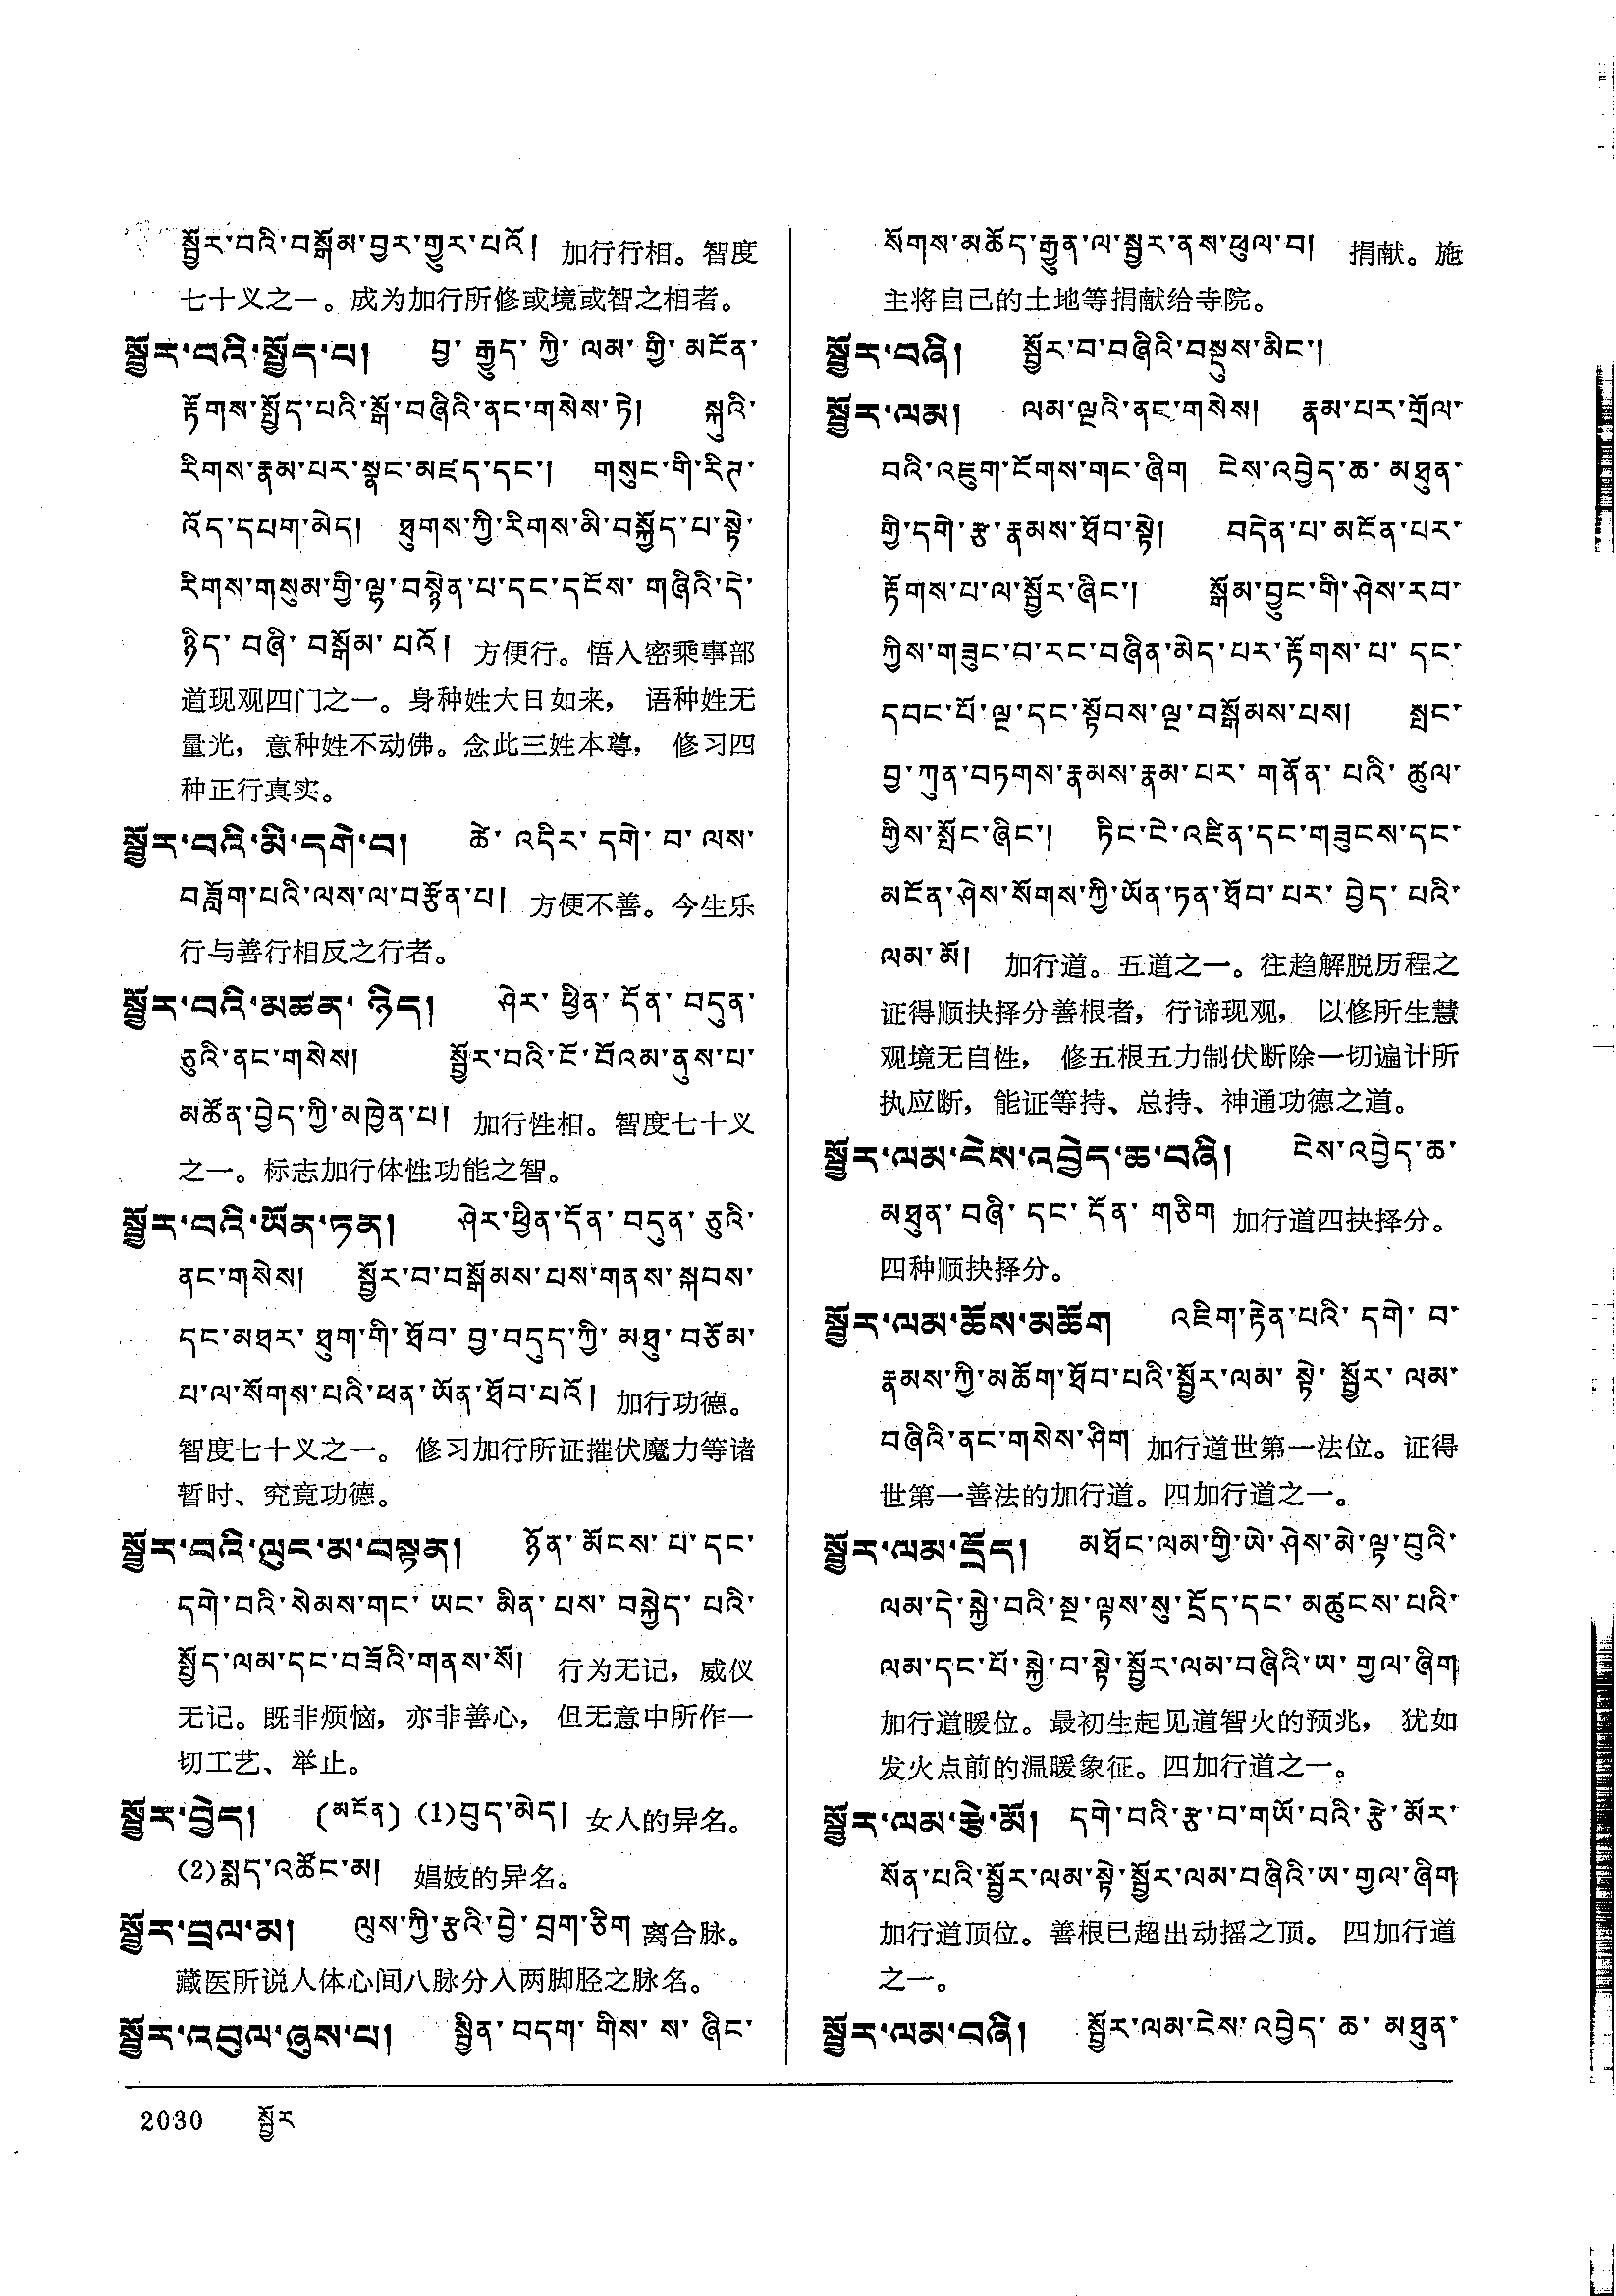 སྦྱོར་བའི་བསྒོམ་བྱར་གྱུར་པའོ། 加行行相。智度
七十义之一。成为加行所修或境或智之相者。
སྦྱོར་བའི་སྤྱོད་པ། བྱ་རྒྱུད་ཀྱི་ལམ་གྱི་མངོན་
རྟོགས་སྤྱོད་པའི་སྒོ་བཞིའི་ནང་གསེས་ཏེ། སྐུའི་
རིགས་རྣམ་པར་སྣང་མཛད་དང་། གསུང་གི་རིཊ་
འོད་དཔག་མེད། ཐུགས་ཀྱི་རིགས་མི་བསྐྱོད་པ་སྟེ་
རིགས་གསུམ་གྱི་ལྷ་བསྙེན་པ་དང་དངོས་གཞིའི་དེ་
ཉིད་བཞི་བསྒོམ་པའོ། 方便行。悟入密乘事部
道现观四门之一。身种姓大日如来， 语种姓无
量光，意种姓不动佛。念此三姓本尊， 修习四
种正行真实。
སྦྱོར་བའི་མི་དགེ་བ། ཚེ་འདིར་དགེ་བ་ལས་
བཟློག་པའི་ལས་ལ་བརྩོན་པ། 方便不善。今生乐
行与善行相反之行者。
སྦྱོར་བའི་མཚན་ཉིད། ཤེར་ཕྱིན་དོན་བདུན་
ཅུའི་ནང་གསེས། སྦྱོར་བའི་ངོ་བོའམ་ནུས་པ་
མཚོན་བྱེད་ཀྱི་མཁྱེན་པ། 加行性相。智度七十义
之一。标志加行体性功能之智。
སྦྱོར་བའི་ཡོན་ཏན། ཤེར་ཕྱིན་དོན་བདུན་ཅུའི་
ནང་གསེས། སྦྱོར་བ་བསྒོམས་པས་གནས་སྐབས་
དང་མཐར་ཐུག་གི་ཐོབ་བྱ་བདུད་ཀྱི་མཐུ་བཅོམ་
པ་ལ་སོགས་པའི་ཕན་ཡོན་ཐོབ་པའོ། 加行功德。
智度七十义之一。 修习加行所证摧伏魔力等诸
暂时、究竟功德。
སྦྱོར་བའི་ལུང་མ་བསྟན། ཉོན་མོངས་པ་དང་
དགེ་བའི་སེམས་གང་ཡང་མིན་པས་བསྐྱེད་པའི་
སྤྱོད་ལམ་དང་བཟོའི་གནས་སོ། 行为无记，威仪
无记。既非烦恼，亦非善心， 但无意中所作一
切工艺、举止。
སྦྱོར་བྱེད། (མངོན) (1)བུད་མེད། 女人的异名。
(2)སྨད་འཚོང་མ། 娼妓的异名。
སྦྱོར་བྲལ་མ། ལུས་ཀྱི་རྩའི་བྱེ་བྲག་ཅིག 离合脉。
藏医所说人体心间八脉分入两脚胫之脉名。
སྦྱོར་འབུལ་ཞུས་པ། སྦྱིན་བདག་གིས་ས་ཞིང་
སོགས་མཆོད་རྒྱུན་ལ་སྦྱར་ནས་ཕུལ་བ། 捐献。施
主将自己的土地等捐献给寺院。
སྦྱོར་བཞི། སྦྱོར་བ་བཞིའི་བསྡུས་མིང་།
སྦྱོར་ལམ། ལམ་ལྔའི་ནང་གསེས། རྣམ་པར་གྲོལ་
བའི་འཇུག་ངོགས་གང་ཞིག ངེས་འབྱེད་ཆ་མཐུན་
གྱི་དགེ་རྩ་རྣམས་ཐོབ་སྟེ། བདེན་པ་མངོན་པར་
རྟོགས་པ་ལ་སྦྱོར་ཞིང་། སྒོམ་བྱུང་གི་ཤེས་རབ་
ཀྱིས་གཟུང་བ་རང་བཞིན་མེད་པར་རྟོགས་པ་དང་
དབང་པོ་ལྔ་དང་སྟོབས་ལྔ་བསྒོམས་པས། སྤང་
བྱ་ཀུན་བཏགས་རྣམས་རྣམ་པར་གནོན་པའི་ཚུལ་
གྱིས་སྤོང་ཞིང་། ཏིང་ངེ་འཛིན་དང་གཟུངས་དང་
མངོན་ཤེས་སོགས་ཀྱི་ཡོན་ཏན་ཐོབ་པར་བྱེད་པའི་
ལམ་མོ། 加行道。五道之一。往趋解脱历程之
证得顺抉择分善根者，行谛现观， 以修所生慧
观境无自性， 修五根五力制伏断除一切遍计所
执应断，能证等持、总持、神通功德之道。
སྦྱོར་ལམ་ངེས་འབྱེད་ཆ་བཞི། ངེས་འབྱེད་ཆ་
མཐུན་བཞི་དང་དོན་གཅིག 加行道四抉择分。
四种顺抉择分。
སྦྱོར་ལམ་ཆོས་མཆོག འཇིག་རྟེན་པའི་དགེ་བ་
རྣམས་ཀྱི་མཆོག་ཐོབ་པའི་སྦྱོར་ལམ་སྟེ་སྦྱོར་ལམ་
བཞིའི་ནང་གསེས་ཤིག 加行道世第一法位。证得
世第一善法的加行道。四加行道之一。
སྦྱོར་ལམ་དྲོད། མཐོང་ལམ་གྱི་ཡེ་ཤེས་མེ་ལྟ་བུའི་
ལམ་དེ་སྐྱེ་བའི་སྔ་ལྟས་སུ་དྲོད་དང་མཚུངས་པའི་
ལམ་དང་པོ་སྐྱེ་བ་སྟེ་སྦྱོར་ལམ་བཞིའི་ཡ་གྱལ་ཞིག
加行道暖位。最初生起见道智火的预兆， 犹如
发火点前的温暖象征。四加行道之一。
སྦྱོར་ལམ་རྩེ་མོ། དགེ་བའི་རྩ་བ་གཡོ་བའི་རྩེ་མོར་
སོན་པའི་སྦྱོར་ལམ་སྟེ་སྦྱོར་ལམ་བཞིའི་ཡ་གྱལ་ཞིག
加行道顶位。善根已超出动摇之顶。 四加行道
之一。
སྦྱོར་ལམ་བཞི། སྦྱོར་ལམ་ངེས་འབྱེད་ཆ་མཐུན་
2030 སྦྱོར